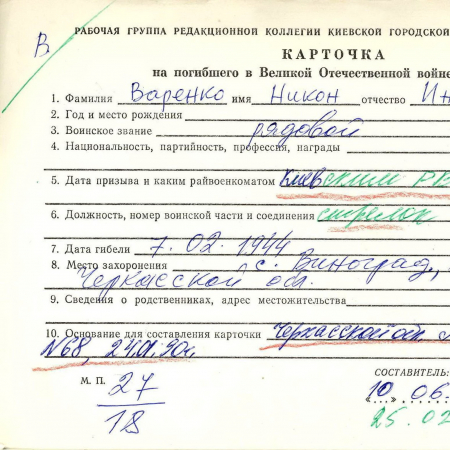 В.
РАБОЧАЯ ГРУППА РЕДАКЦИОННОЙ КОЛЛЕГИИ КИЕВСКОЙ ГОРОДСКОЙ
КАРТОЧКА
на погибшего в Великой Отечественной войне
1. Фамилия Варенко имя Никон отчество Ин
2. Год и место рождения
3. Воинское звание рядовой
4. Национальность, партийность, профессия, награды
5. Дата призыва и каким райвоенкоматом Киевским РВ
6. Должность, номер воинской части и соединения стрелок
7. Дата гибели 7.02.1944
8. Место захоронения с. Виноград,
Черкасской обл.
9. Сведения о родственниках, адрес местожительства
10. Основание для составления карточки Черкасской обл.
N68, 24.01.90г.
СОСТАВИТЕЛЬ:
М. П. 27
18
"10" 06.
25.02